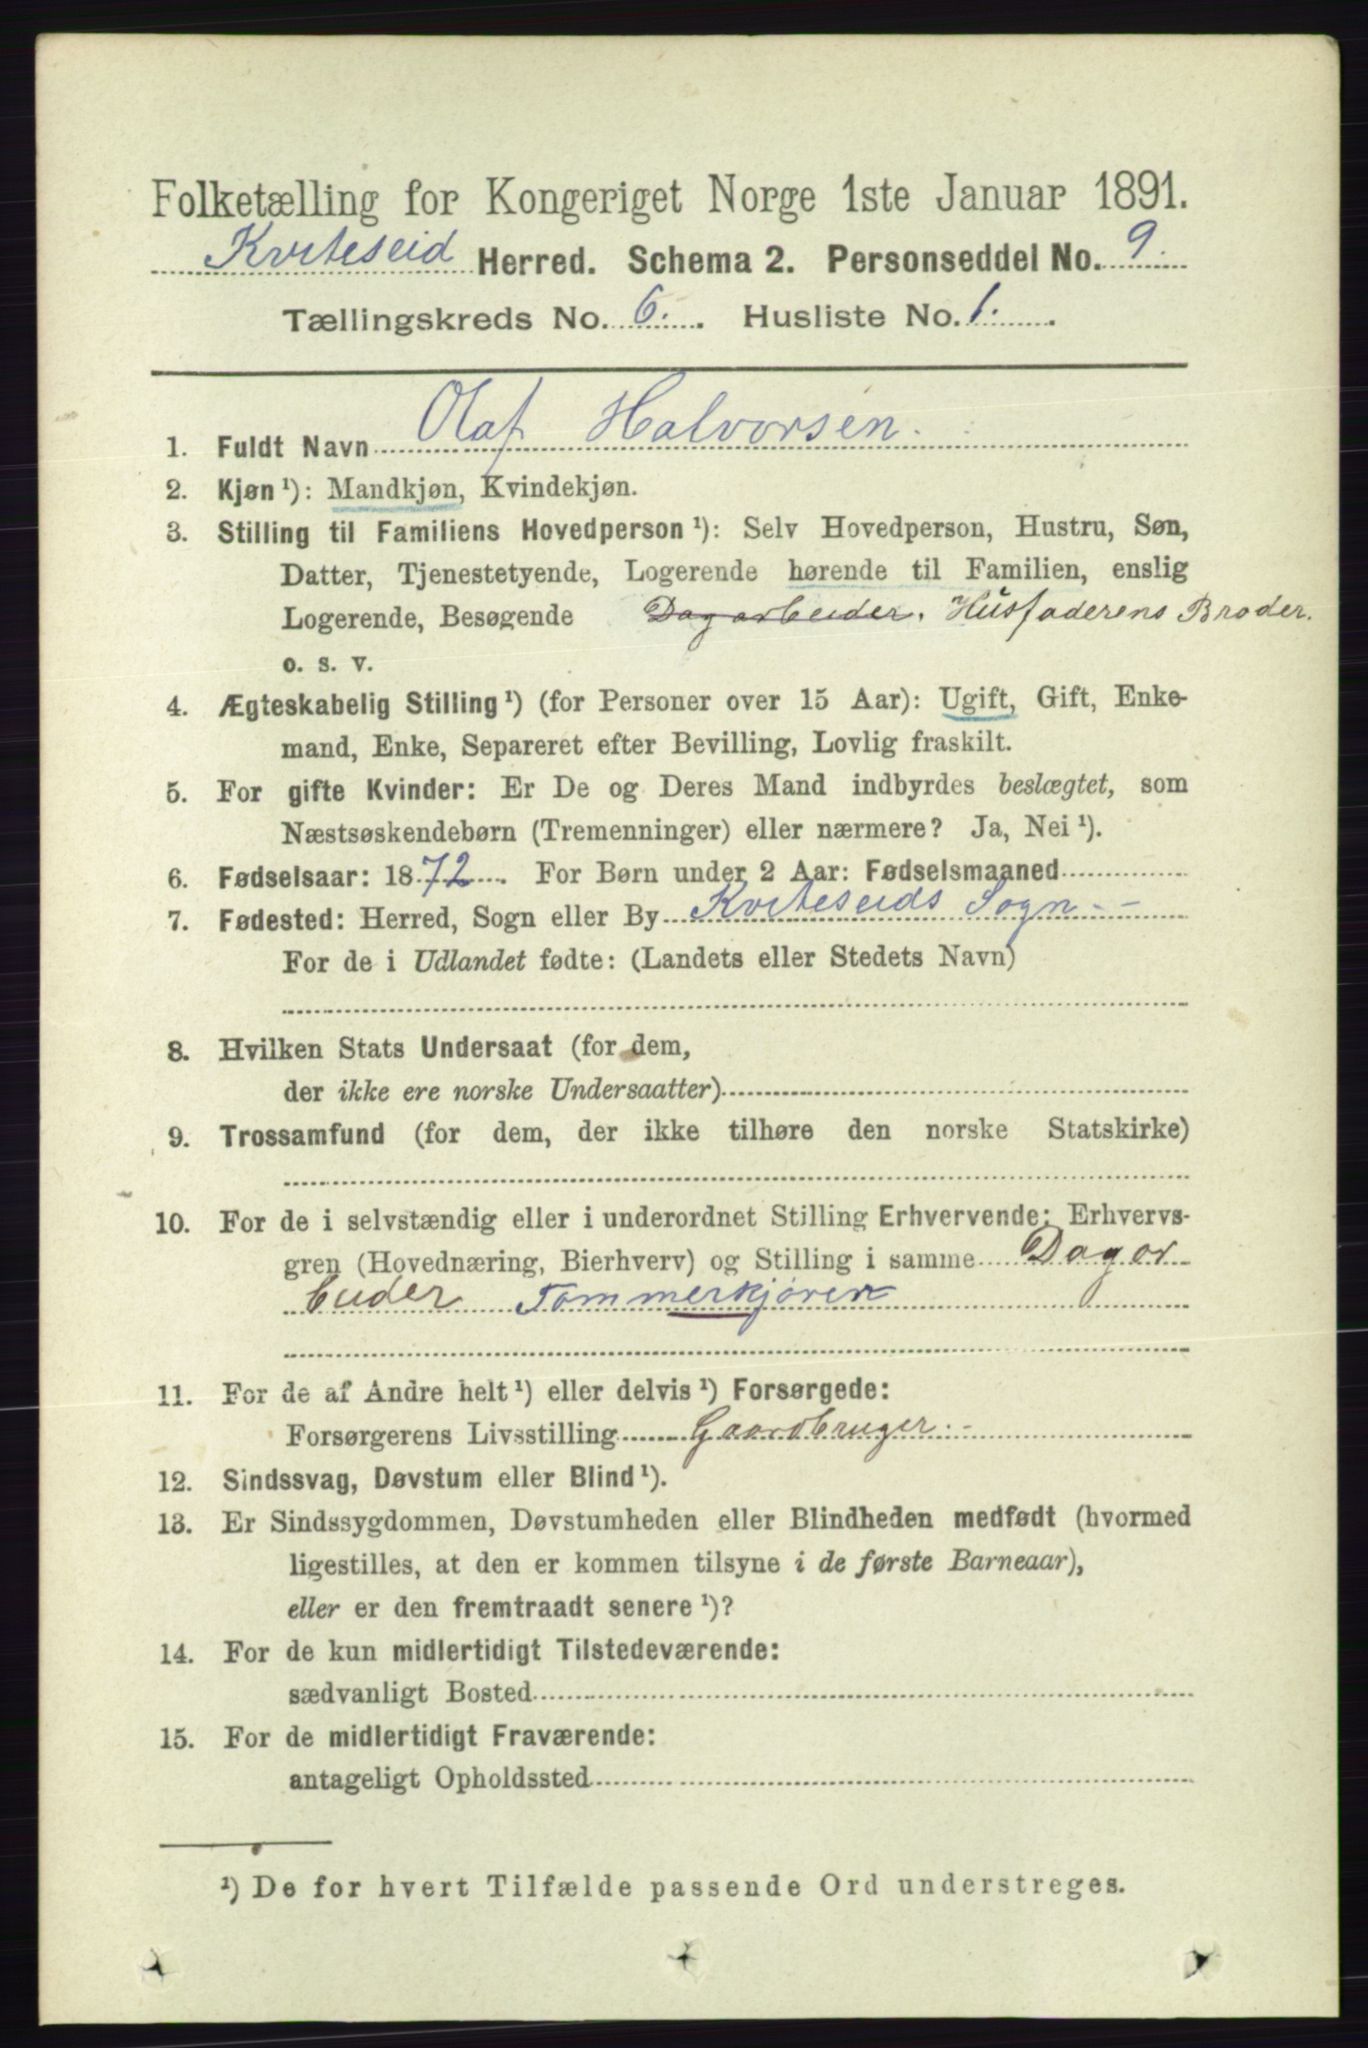 Folketælling for Kongeriget Norge 1ste Januar 1891.
Kviteseid Herred. Schema 2. Personseddel No. 9.
Tællingskreds No. 6. Husliste No. 1.
1. Fuldt Navn Olaf Halvorsen.
2. Kjøn ¹): Mandkjøn, Kvindekjøn.
3. Stilling til Familiens Hovedperson ¹): Selv Hovedperson, Hustru, Søn,
Datter, Tjenestetyende, Logerende hørende til Familien, enslig
Logerende, Besøgende Dagarbeider. Husfaderens Broder.
o. s. v.
4. Ægteskabelig Stilling ¹) (for Personer over 15 Aar): Ugift, Gift, Enke-
mand, Enke, Separeret efter Bevilling, Lovlig fraskilt.
5. For gifte Kvinder: Er De og Deres Mand indbyrdes beslægtet, som
Næstsøskendebørn (Tremenninger) eller nærmere? Ja, Nei ¹).
6. Fødselsaar: 1872. For Børn under 2 Aar: Fødselsmaaned
7. Fødested: Herred, Sogn eller By Kviteseids Sogn --
For de i Udlandet fødte: (Landets eller Stedets Navn)
8. Hvilken Stats Undersaat (for dem,
der ikke ere norske Undersaatter)
9. Trossamfund (for dem, der ikke tilhøre den norske Statskirke)
10. For de i selvstændig eller i underordnet Stilling Erhvervende: Erhvervs-
gren (Hovednæring, Bierhverv) og Stilling i samme Dagar
beider Tømmerkjører
11. For de af Andre helt ¹) eller delvis ¹) Forsørgede:
Forsørgerens Livsstilling Gaardbruger.-
12. Sindssvag, Døvstum eller Blind ¹).
13. Er Sindssygdommen, Døvstumheden eller Blindheden medfødt (hvormed
ligestilles, at den er kommen tilsyne i de første Barneaar),
eller er den fremtraadt senere ¹)?
14. For de kun midlertidigt Tilstedeværende:
sædvanligt Bosted
15. For de midlertidigt Fraværende:
antageligt Opholdssted
¹) De for hvert Tilfælde passende Ord understreges.